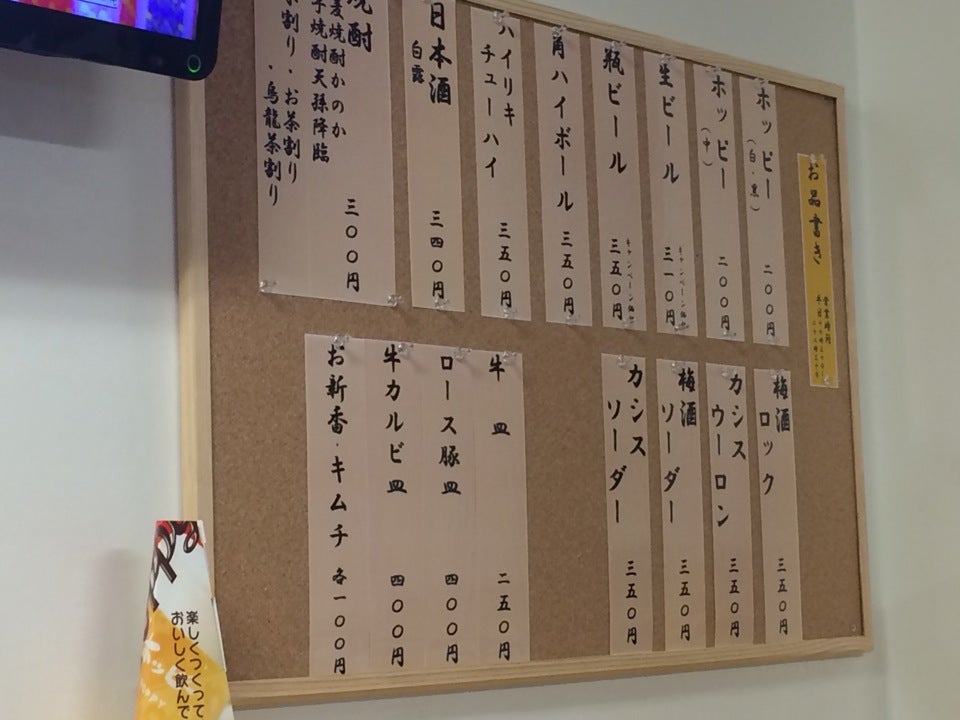 お品書き
営業時間
平日
ホッピー
(白・黒)
二〇〇円
ホッピー
(中)
二〇〇円
生ビール
キャンペーン価格
三一〇円
瓶ビール
キャンペーン価格
三五〇円
角ハイボール
三五〇円
ハイリキ
チューハイ
三五〇円
日本酒
白露
三四〇円
焼酎
麦焼酎かのか
芋焼酎天孫降臨
水割り・お茶割り
・烏龍茶割り
三〇〇円
梅酒
ロック
三五〇円
カシス
ウーロン
三五〇円
梅酒
ソーダー
三五〇円
カシス
ソーダー
三五〇円
牛皿
二五〇円
ロース豚皿
四〇〇円
牛カルビ皿
四〇〇円
お新香・キムチ
各一〇〇円
楽しくつくって
おいしく飲んで